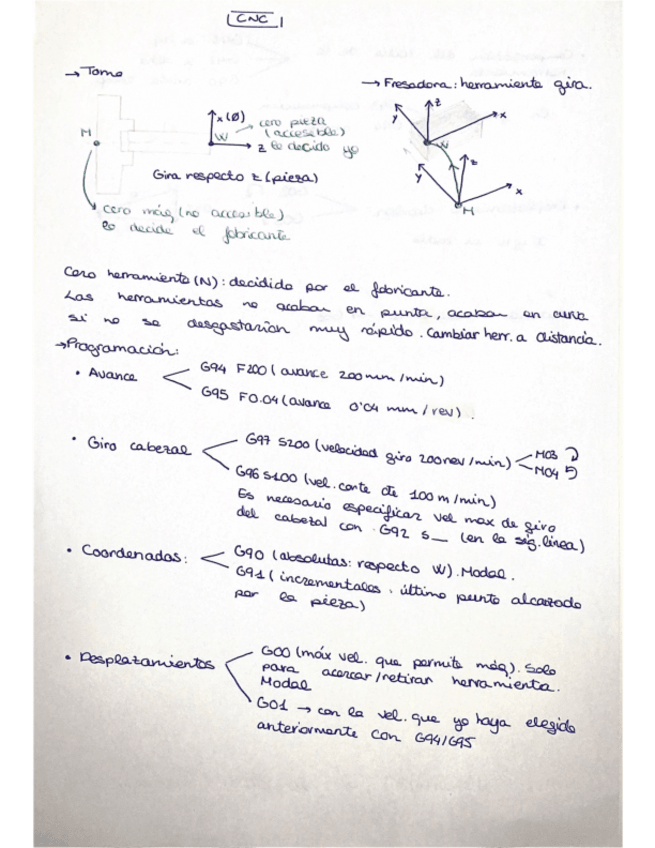 CNC
→ Torno
→ Fresadora: herramienta gira.
x (Ø)
cero pieza
(accesible)
W
z lo decido yo
M
Gira respecto z (pieza)
cero máq (no accesible)
lo decide el fabricante
z
y
x
W
z
y
x
M
Cero herramienta (N): decidido por el fabricante.
Las herramientas no acaban en punta, acaban en curva
si no se desgastarían muy rápido. Cambiar herr. a distancia.
→Programación:
• Avance
G94 F200 (avance 200 mm/min)
G95 F0.04 (avance 0'04 mm/rev).
• Giro cabezal
G97 S200 (velocidad giro 200rev/min)
M03
M04
G96 S100 (vel. corte cte 100 m/min)
Es necesario especificar vel max de giro
del cabezal con G92 S__ (en la sig. línea)
• Coordenadas:
G90 (absolutas: respecto W). Modal.
G91 (incrementales. último punto alcanzado
por la pieza)
• Desplazamientos
G00 (máx vel. que permite máq). Solo
para acercar/retirar herramienta.
Modal
G01 → con la vel. que yo haya elegido
anteriormente con G94/G95